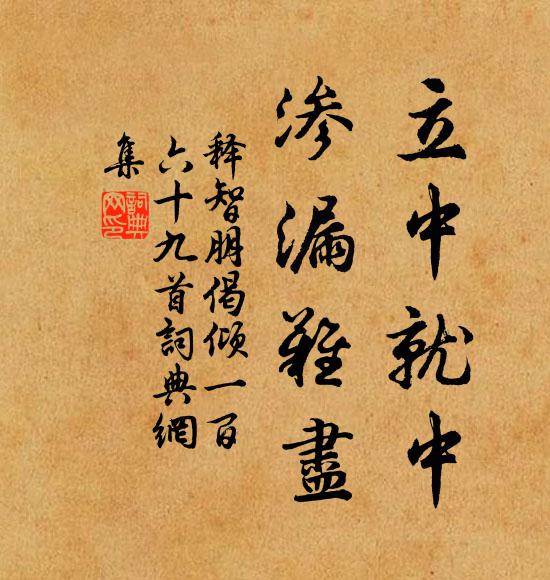 立中就中
渗漏難盡
释智朋偈倾一百
六十九首詞典網
集
詞典網印